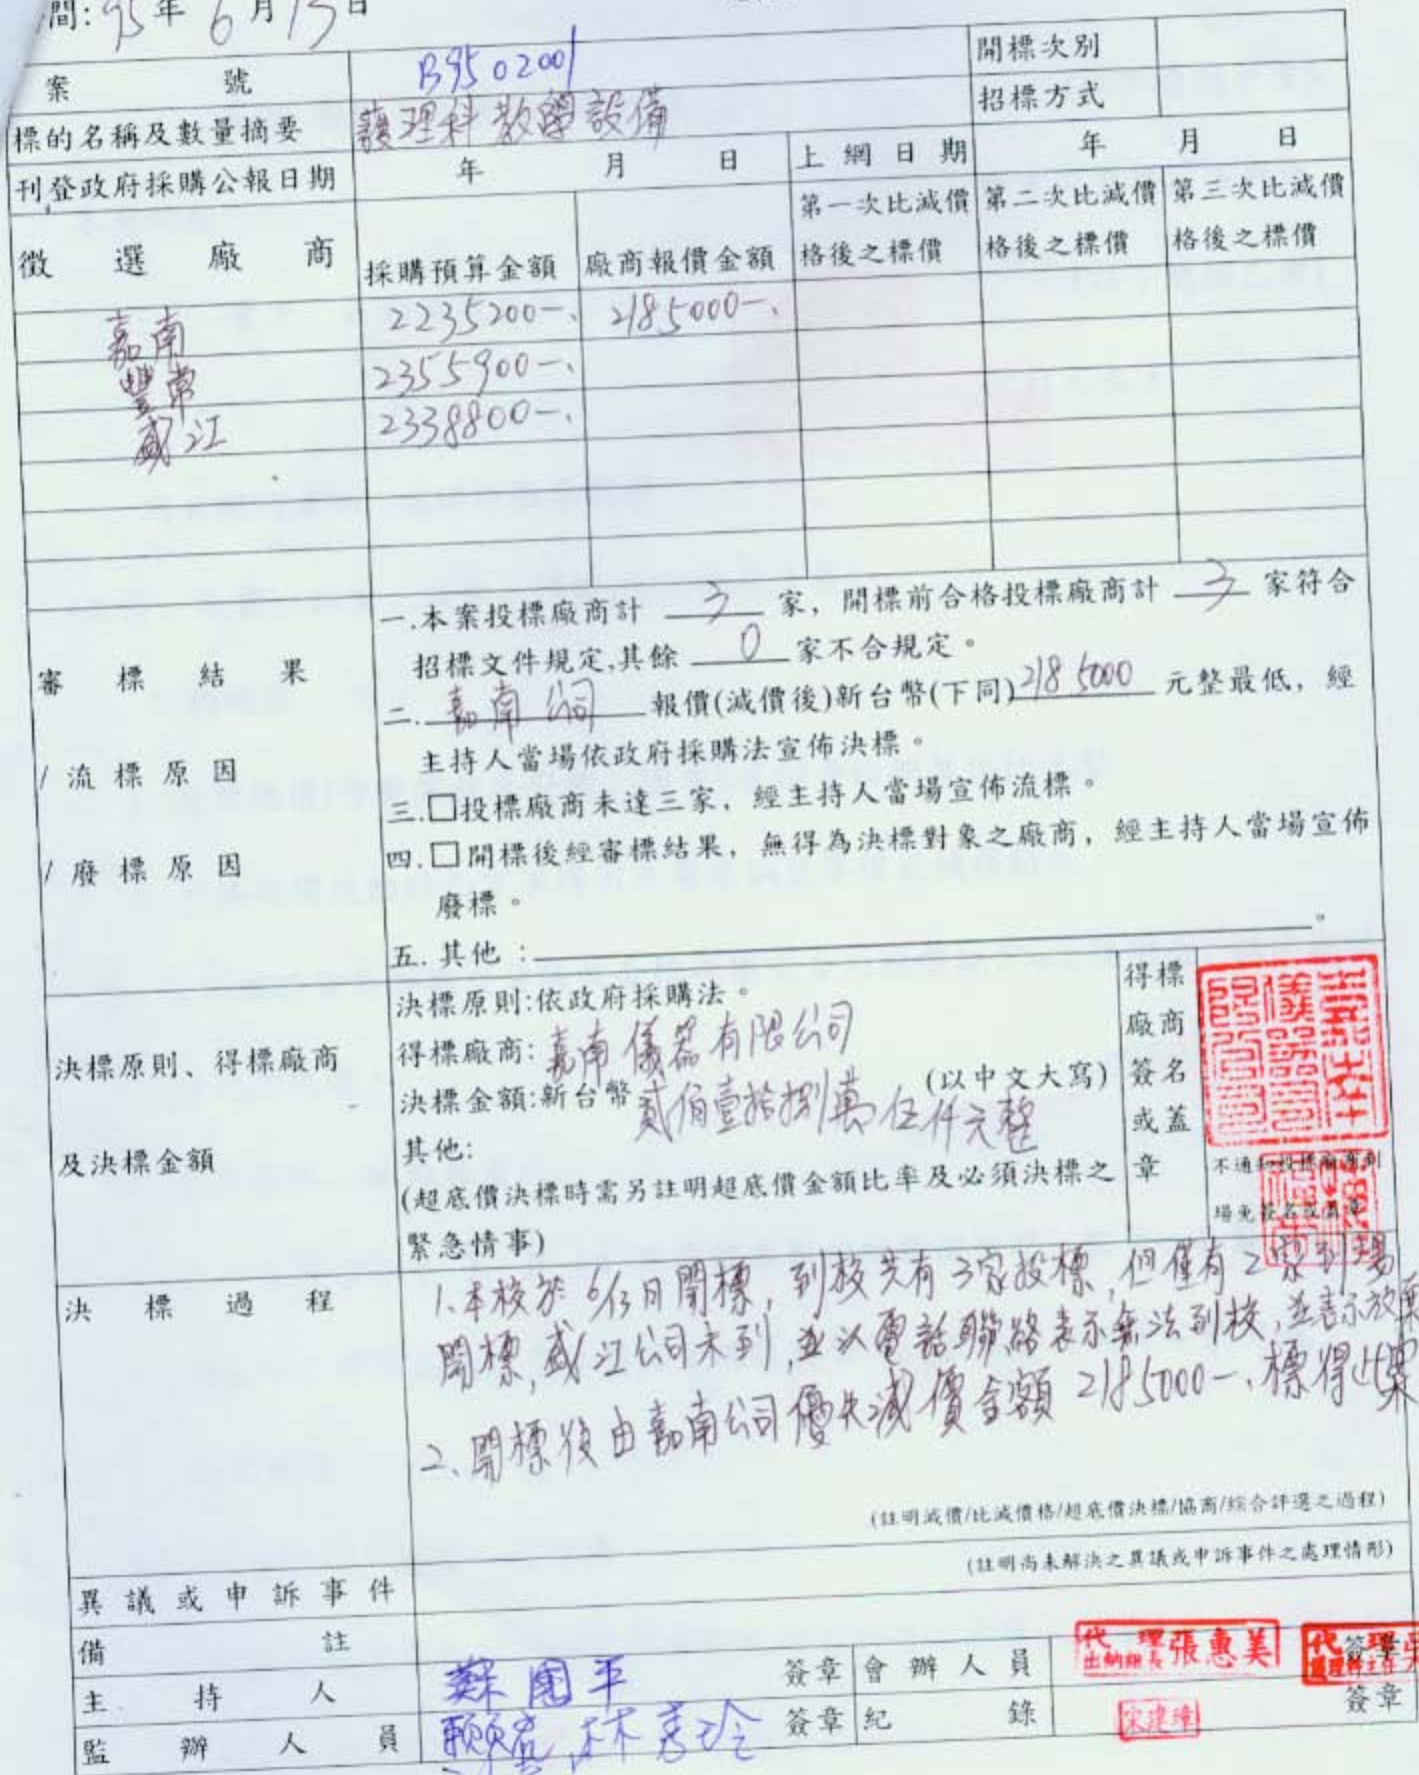 間:95年6月13日
案 號 B9502001 開標次別
標的名稱及數量摘要 護理科教學設備 招標方式
刊登政府採購公報日期 年 月 日 上網日期 年 月 日
徵選廠商 採購預算金額 廠商報價金額 第一次比減價格後之標價 第二次比減價格後之標價 第三次比減價格後之標價
嘉南 2235200-. 2185000-.
豐常 2355900-.
盛江 2338800-.
審標結果
/流標原因
/廢標原因
一.本案投標廠商計 3 家，開標前合格投標廠商計 3 家符合
招標文件規定,其餘 0 家不合規定。
二.嘉南公司 報價(減價後)新台幣(下同)2185000 元整最低，經
主持人當場依政府採購法宣佈決標。
三.□投標廠商未達三家，經主持人當場宣佈流標。
四.□開標後經審標結果，無得為決標對象之廠商，經主持人當場宣佈
廢標。
五.其他：。
決標原則、得標廠商
及決標金額
決標原則:依政府採購法。
得標廠商:嘉南儀器有限公司
決標金額:新台幣 貳佰壹拾捌萬伍仟元整 (以中文大寫)
其他:
(超底價決標時需另註明超底價金額比率及必須決標之
緊急情事)
得標
廠商
簽名
或蓋
章
不通知投標廠商到
場免簽名或蓋章
決標過程
1.本校於6/13日開標，到校共有3家投標，但僅有2家到場
開標，盛江公司未到，並以電話聯絡表示無法到校，並表示放棄
2、開標後由嘉南公司優先減價金額2185000-.標得此案
(註明減價/比減價格/超底價決標/協商/綜合評選之過程)
(註明尚未解決之異議或申訴事件之處理情形)
異議或申訴事件
備 註
主 持 人 簽章 會辦人員 代理出納組長張惠美 代理 簽章
監辦人員 林 簽章 紀 錄 宋建 簽章